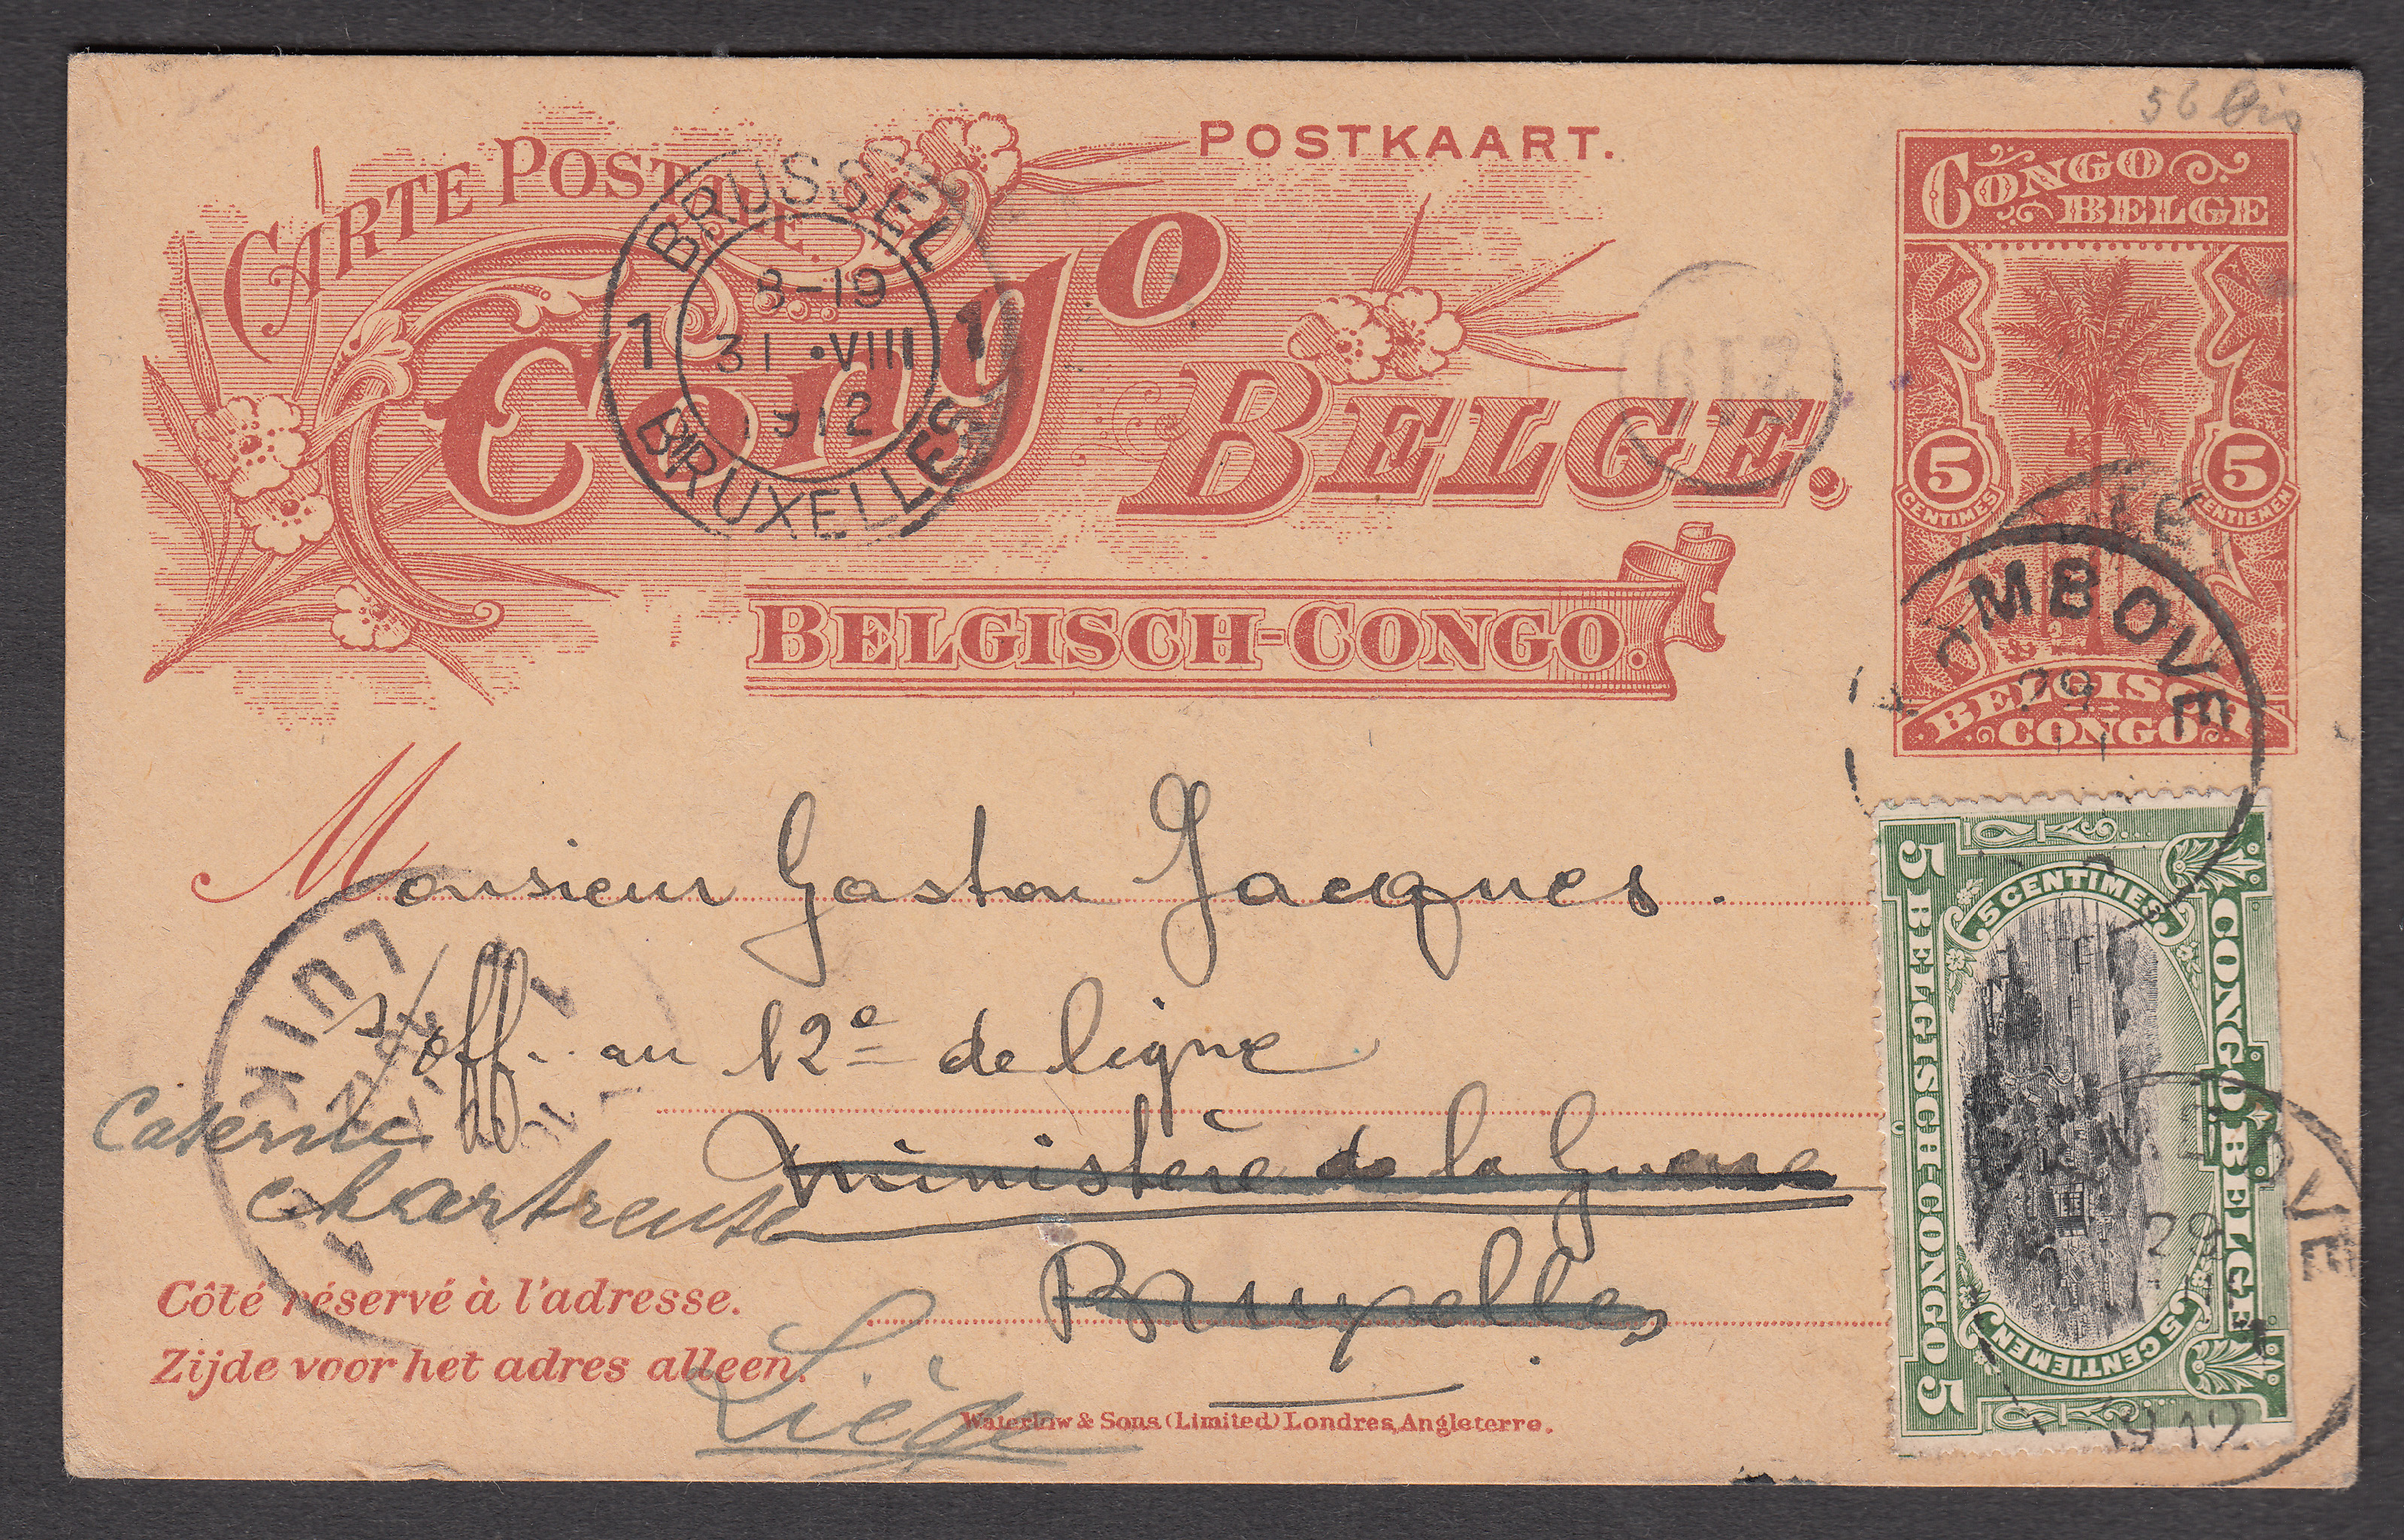 56 bis
CARTE POSTALE.
POSTKAART.
CONGO BELGE.
BELGISCH-CONGO.
CONGO
BELGE
5 5
CENTIMES CENTIEMEN
BELGISCH
CONGO
BRUSSEL
8-19
1 31 •VIII 1
1912
BRUXELLES
219
MBOVE
29
Monsieur Gaston Jacques.
s/off. au 12e de ligne
ministère de la Guerre
Bruxelles
Caserne
Chartreuse
Liège
LUIK
1
Côté réservé à l'adresse.
Zijde voor het adres alleen.
Waterlow & Sons (Limited) Londres, Angleterre.
5 CENTIMES
CONGO BELGE
5 BELGISCH-CONGO 5
5 CENTIEMEN
MBOVE
29
1912